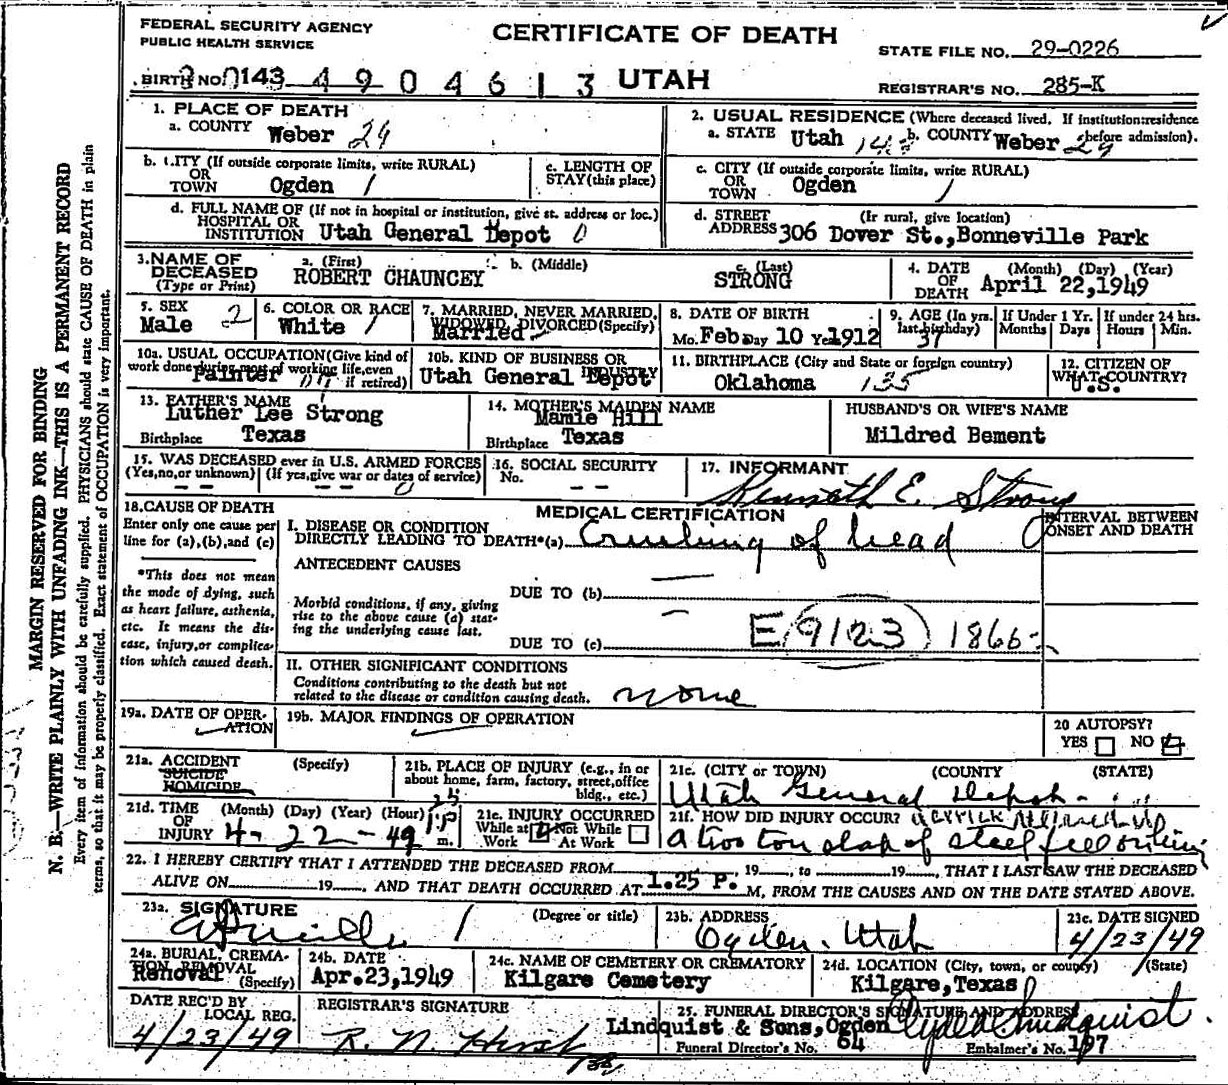 FEDERAL SECURITY AGENCY
PUBLIC HEALTH SERVICE
CERTIFICATE OF DEATH
STATE FILE NO. 29-0226
BIRTH NO. 0143 4904613 UTAH
REGISTRAR'S NO. 285-K
1. PLACE OF DEATH
a. COUNTY Weber 29
2. USUAL RESIDENCE (Where deceased lived. If institution:residence before admission).
a. STATE Utah b. COUNTY Weber 29
b. CITY (If outside corporate limits, write RURAL) OR TOWN Ogden 1
c. LENGTH OF STAY (this place)
c. CITY (If outside corporate limits, write RURAL) OR TOWN Ogden 1
d. FULL NAME OF (If not in hospital or institution, give st. address or loc.) HOSPITAL OR INSTITUTION Utah General Depot 0
d. STREET ADDRESS (If rural, give location) 306 Dover St., Bonneville Park
3. NAME OF DECEASED (Type or Print)
a. (First) ROBERT CHAUNCEY b. (Middle) c. (Last) STRONG
4. DATE OF DEATH (Month) (Day) (Year) April 22,1949
5. SEX Male 2
6. COLOR OR RACE White 1
7. MARRIED, NEVER MARRIED, WIDOWED, DIVORCED(Specify) Married
8. DATE OF BIRTH Mo. Feb Day 10 Year 1912
9. AGE (In yrs. last birthday) 37
If Under 1 Yr. Months Days
If under 24 hrs. Hours Min.
10a. USUAL OCCUPATION(Give kind of work done during most of working life,even if retired) Painter
10b. KIND OF BUSINESS OR INDUSTRY Utah General Depot
11. BIRTHPLACE (City and State or foreign country) Oklahoma 135
12. CITIZEN OF WHAT COUNTRY? U.S.
13. FATHER'S NAME Luther Lee Strong
Birthplace Texas
14. MOTHER'S MAIDEN NAME Mamie Hill
Birthplace Texas
HUSBAND'S OR WIFE'S NAME
Mildred Bement
15. WAS DECEASED ever in U.S. ARMED FORCES
(Yes,no,or unknown) (If yes,give war or dates of service)
-- -- 0
16. SOCIAL SECURITY No. --
17. INFORMANT Kenneth E. Strong
18. CAUSE OF DEATH
Enter only one cause per line for (a),(b),and (c)
*This does not mean the mode of dying, such as heart failure, asthenia, etc. It means the disease, injury,or complication which caused death.
MEDICAL CERTIFICATION
INTERVAL BETWEEN ONSET AND DEATH
I. DISEASE OR CONDITION DIRECTLY LEADING TO DEATH*(a) Crushing of head
ANTECEDENT CAUSES
DUE TO (b) —
Morbid conditions, if any, giving rise to the above cause (a) stating the underlying cause last.
DUE TO (c) —
E 9123 1866
II. OTHER SIGNIFICANT CONDITIONS
Conditions contributing to the death but not related to the disease or condition causing death. none
19a. DATE OF OPERATION
19b. MAJOR FINDINGS OF OPERATION
20 AUTOPSY?
YES NO
21a. ACCIDENT (Specify)
SUICIDE
HOMICIDE
21b. PLACE OF INJURY (e.g., in or about home, farm, factory, street,office bldg., etc.)
21c. (CITY or TOWN) (COUNTY (STATE)
Utah General Depot
21d. TIME OF INJURY (Month) (Day) (Year) (Hour) m.
4-22-49 1:25 P
21e. INJURY OCCURRED
While at Work Not While At Work
21f. HOW DID INJURY OCCUR?
A two ton slap of steel fell on him
22. I HEREBY CERTIFY THAT I ATTENDED THE DECEASED FROM , 19 , to 19 , THAT I LAST SAW THE DECEASED
ALIVE ON 19 , AND THAT DEATH OCCURRED AT 1.25 P. M, FROM THE CAUSES AND ON THE DATE STATED ABOVE.
23a. SIGNATURE (Degree or title)
23b. ADDRESS Ogden, Utah
23c. DATE SIGNED 4/23/49
24a. BURIAL, CREMATION, REMOVAL (Specify) Removal
24b. DATE Apr.23,1949
24c. NAME OF CEMETERY OR CREMATORY Kilgare Cemetery
24d. LOCATION (City, town, or county) (State) Kilgare,Texas
DATE REC'D BY LOCAL REG. 4/23/49
REGISTRAR'S SIGNATURE R. N. Hirst
25. FUNERAL DIRECTOR'S SIGNATURE AND ADDRESS
Lindquist & Sons,Ogden Clyde Lindquist
Funeral Director's No. 64 Embalmer's No. 197
MARGIN RESERVED FOR BINDING
N. B.—WRITE PLAINLY WITH UNFADING INK—THIS IS A PERMANENT RECORD
Every item of information should be carefully supplied. PHYSICIANS should state CAUSE OF DEATH in plain
terms, so that it may be properly classified. Exact statement of OCCUPATION is very important.